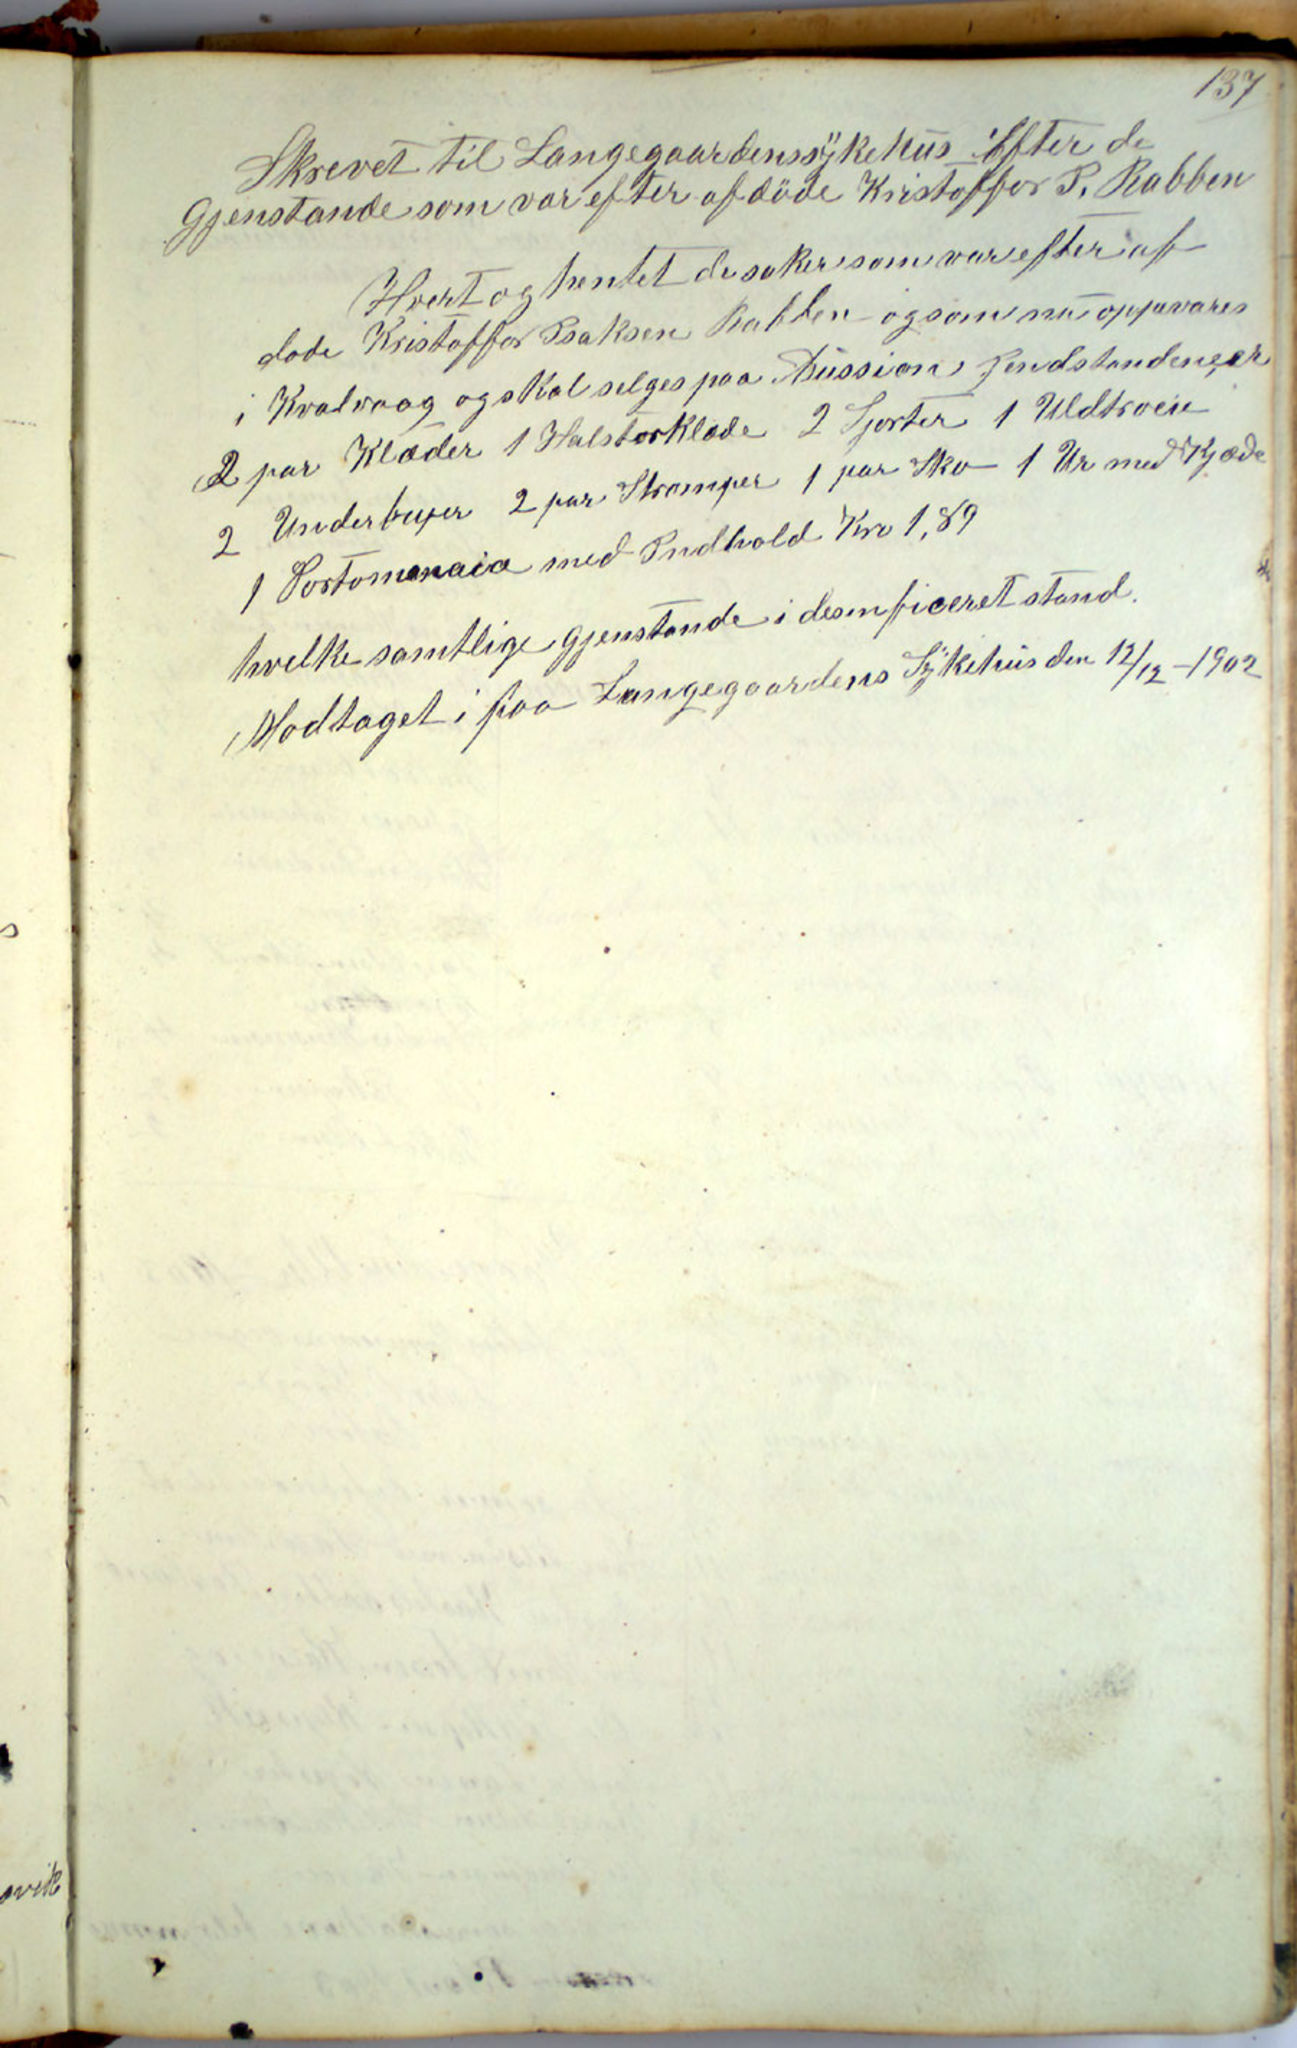 137
Skrevet til Langegaardenssÿkehus efter de
Gjenstande som var efter afdöde Kristoffer I. Rabben
Hvert og hentet de saker som var efter af
döde Kristoffer Isaksen Rabben og som nu oppevares
i Kvalvaag og skal selges paa Aussion, Jendstandene, er
2 par Klæder 1 Halstorklæde 2 Sjorter 1 Uldtroeie
2 Underbuxer 2 par Strømper 1 par Sko 1 Ur med Kjæde
1 Portomonaia med Indhold Kro 1,89
hvelke samtlige gjenstande i desinficeret stand.
Modtaget i paa Langegaardens Sÿkehus den 12/12 - 1902
s
svik